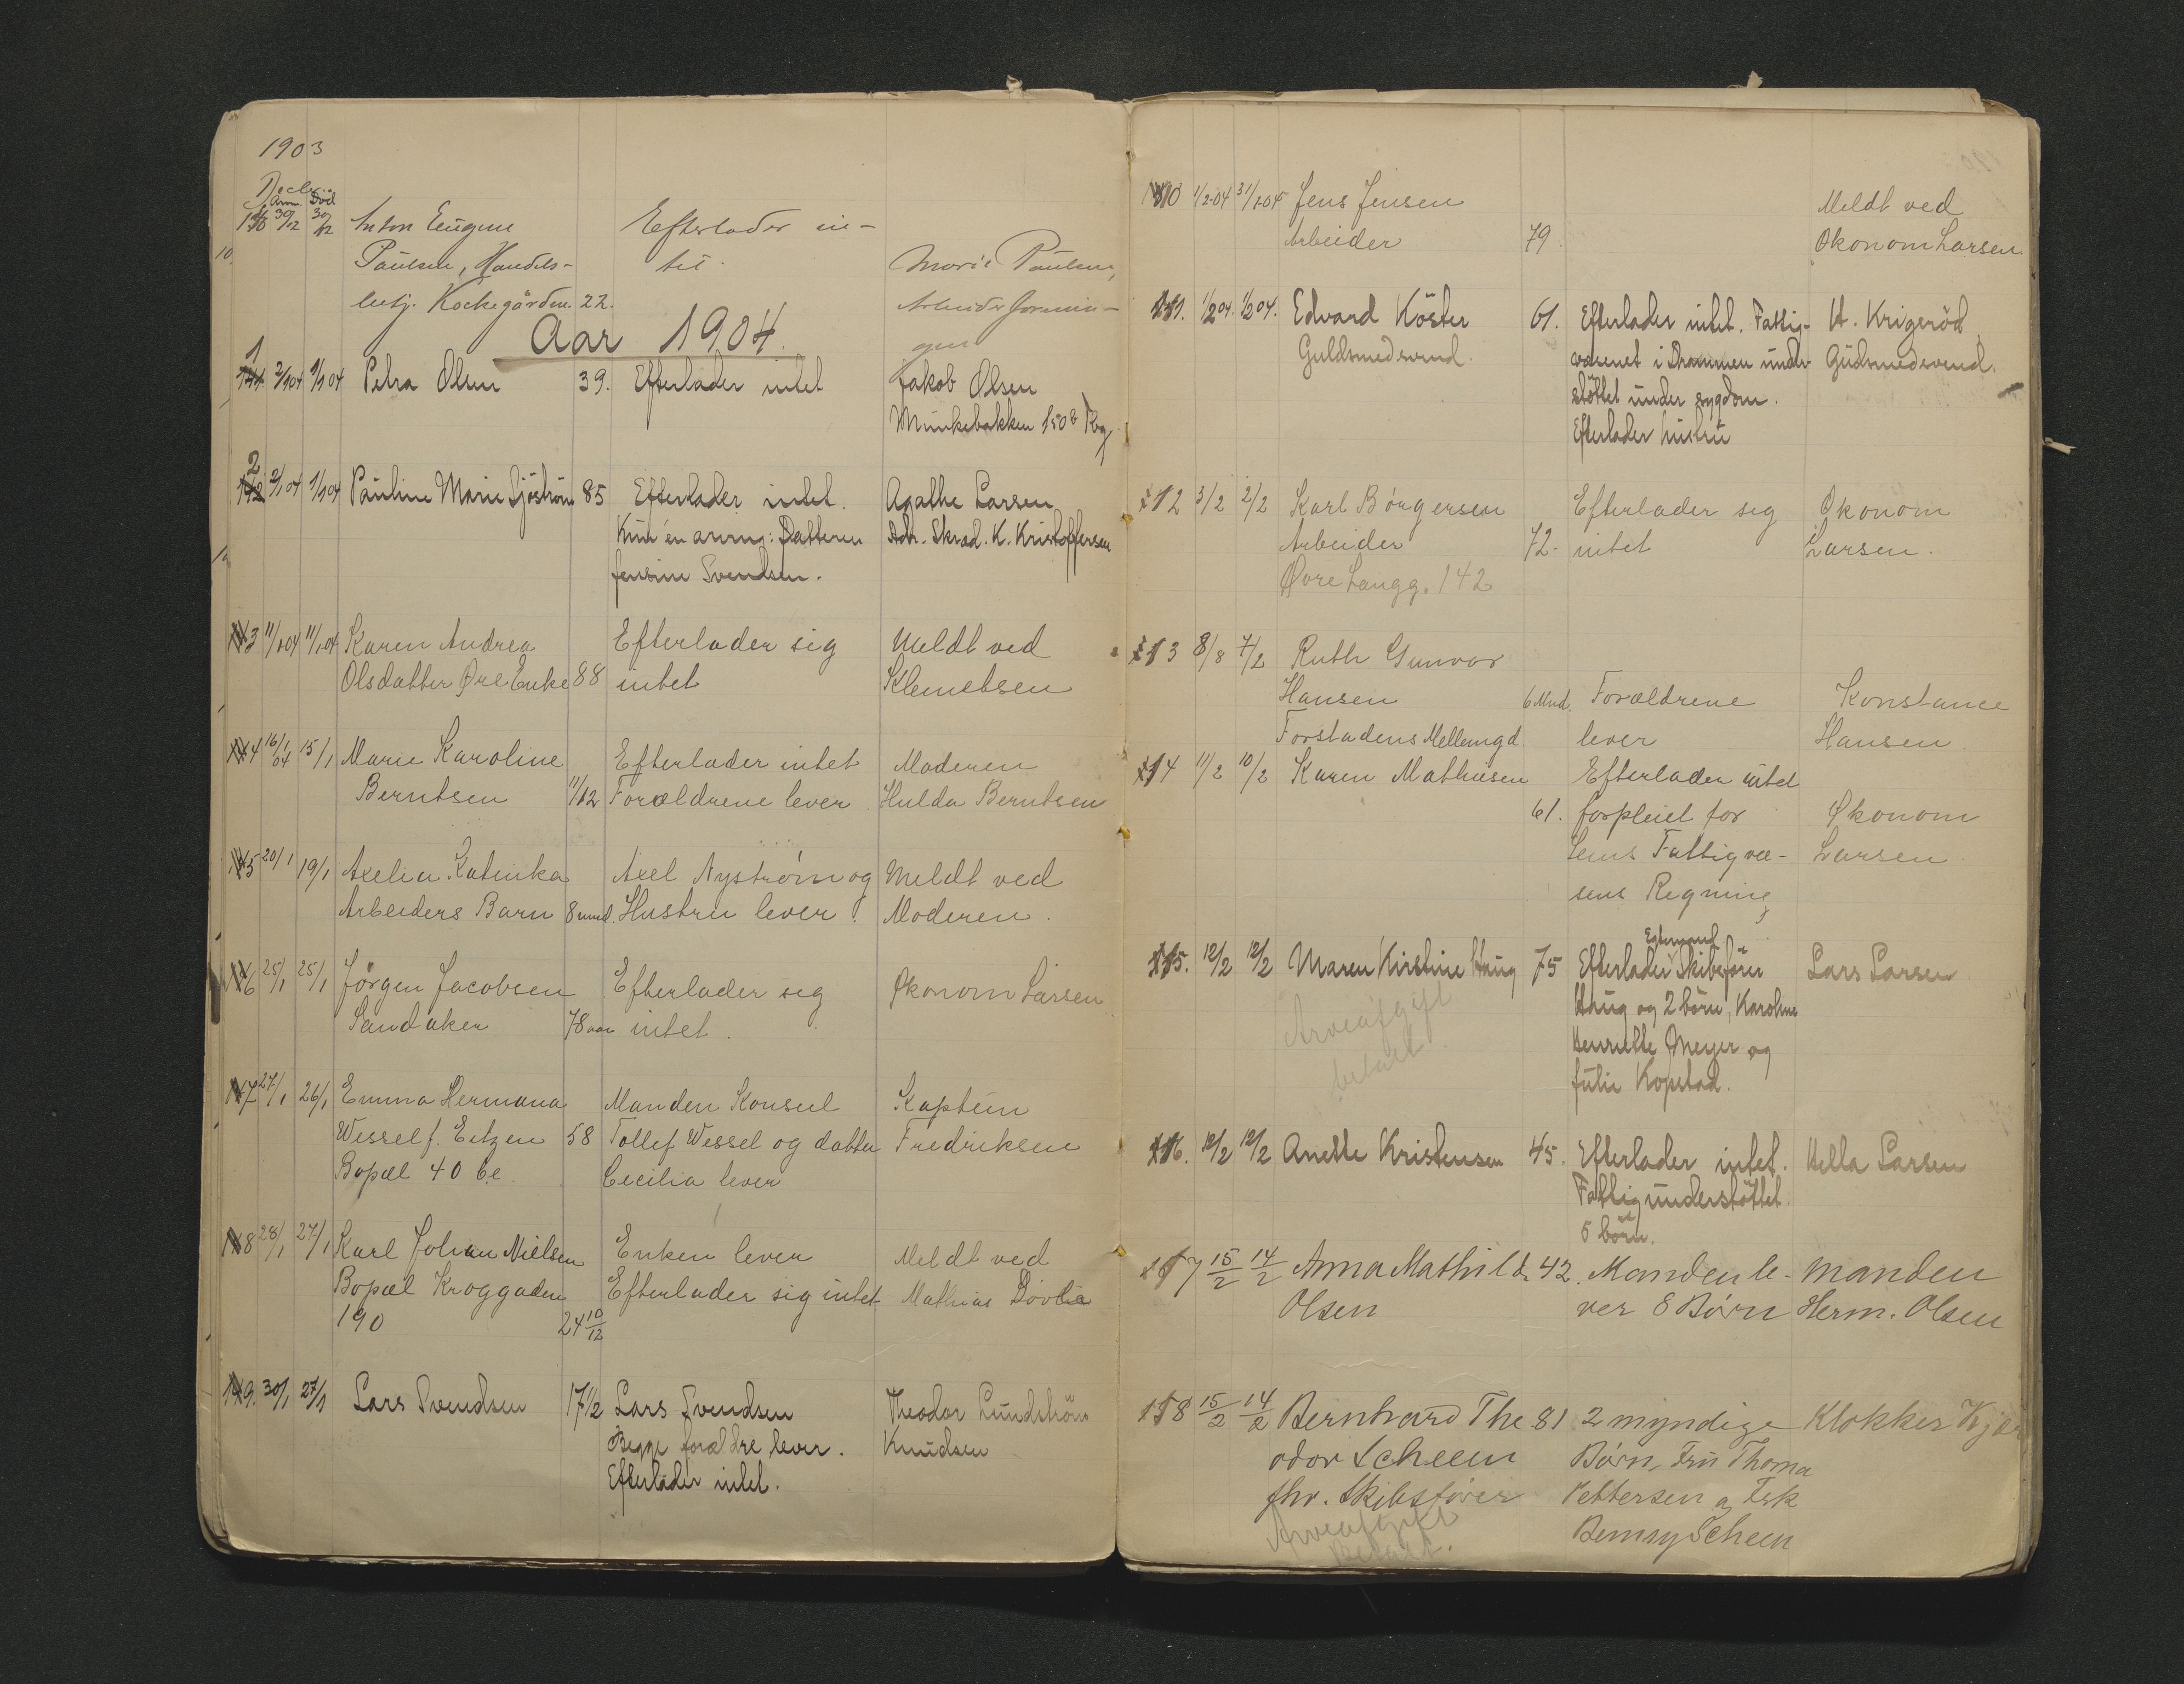 1903
Decbr.
Anm. Död
30/12 30/12 Anton Eugen Efterlader in-
Paulsen, Handels- tet. Marie Paulsen,
betj. Kockegården. 22. Arbeiderforenin-
gen
Aar 1904.
1 2/1 04 1/1 04 Petra Olsen 39. Efterlader intet Jakob Olsen
Munkebakken 150 b Kbg
2 2/1 04 1/1 04 Pauline Marie Sjöström 85 Efterlader intet. Agathe Larsen
Kun én arving: Datteren Adr. Skræd. K. Kristoffersen
Jensine Svendsen.
3 11/1 04 11/1 04 Karen Andrea Efterlader sig Meldt ved
Olsdatter Øre Enke 88 intet Klemetsen
4 16/1 04 15/1 Marie Karoline Efterlader intet Moderen
Berntsen 11/12 Forældrene lever Hulda Berntsen
5 20/1 19/1 Axelia Katinka Axel Nyström og Meldt ved
Arbeiders Barn 8 mnd. Hustru lever. Moderen.
6 25/1 25/1 Jörgen Jacobsen Efterlader sig Økonom Larsen
Sandaker 78 aar intet.
7 27/1 26/1 Emma Hermana Manden Konsul Kaptein
Wessel f. Eitzen 58 Tollef Wessel og datter Fredriksen
Bopæl 40 be Cecilia lever
8 28/1 27/1 Karl Johan Nielsen Enken lever Meldt ved
Bopæl Kroggaden Efterlader sig intet Mathias
190 24 10/12
9. 30/1 27/1 Lars Svendsen 17 1/2 Lars Svendsen Theodor Lundström
Begge forældre lever. Knudsen
Efterlader intet.
10 1/2-04 31/1-04 Jens Jensen Meldt ved
Arbeider 79. Økonom Larsen.
11. 1/2 04. 1/2 04. Edvard Köster 61. Efterlader intet. Fattig- H. Krigeröd
Guldsmedsvend. væsenet i Drammen under- Gudsmedsvend.
støttet under sygdom.
Efterlader hustru
12 3/2 2/2 Karl Børgersen Efterlader sig Økonom
Arbeider 72. intet Larsen.
Øvre Langg. 142
13 8/8 7/2 Ruth Gunvor
Hansen 6 Mnd. Forældrene Konstance
Forstadens Mellemgd. lever Hansen.
14 11/2 10/2 Karen Mathisen Efterlader intet
61. forpleiet for Økonom
Sems Fattigvæ- Larsen
sens Regning
Egtemand
15. 12/2 12/2 Maren Kirstine Haug 75 Efterlader Skibsfører Lars Larsen
Arveafgift Haug og 2 børn, Karoline
betalt. Henriette Meyer og
Julie Kopstad.
16. 12/2 12/2 Anette Kristensen 45. Efterlader intet. Hella Larsen
Fattigunderstøttet.
5 børn.
17 15/2 14/2 Anna Mathilde 42. Manden le- Manden
Olsen ver 8 Børn Herm. Olsen
18 15/2 14/2 Bernhard The 81 2 myndige Klokker Kjær
odor Scheen Børn, Fru Thoma
fhv. Skibsfører Pettersen og Frk
Arveafgift Scheen
Betalt.